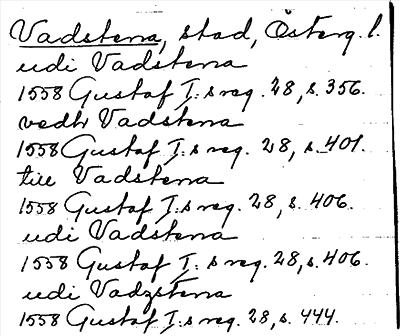 Vadstena, stad, Österg. l.
udi Vadstena
1558 Gustaf I:s reg. 28, s. 356.
vedh Vadstena
1558 Gustaf I:s reg. 28, s. 401.
till Vadstena
1558 Gustaf I:s reg. 28, s. 406.
udi Vadstena
1558 Gustaf I:s reg. 28, s. 406.
udi Vadzstena
1558 Gustaf I:s reg. 28, s. 444.